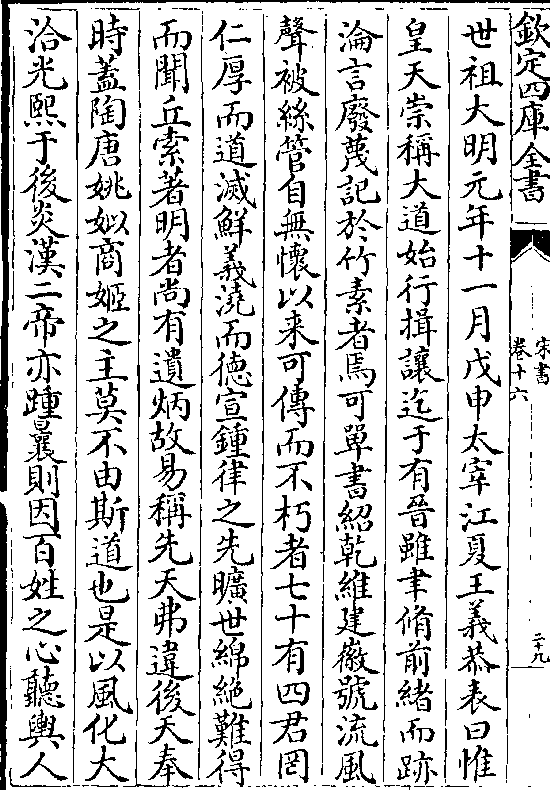 欽定四庫全書
宋書
卷十六
二十九
世祖大明元年十一月戊申太宰江夏王義恭表曰惟
皇天崇稱大道始行揖讓迄于有晉雖聿脩前緒而跡
淪言廢蔑記於竹素者焉可單書紹乾維建徽號流風
聲被絲管自無懐以来可傳而不朽者七十有四君罔
仁厚而道滅鮮義澆而徳宣鍾律之先曠世綿絶難得
而聞丘索著明者尚有遺炳故易稱先天弗違後天奉
時蓋陶唐姚姒商姬之主莫不由斯道也是以風化大
洽光熙于後炎漢二帝亦踵曩則因百姓之心聽輿人